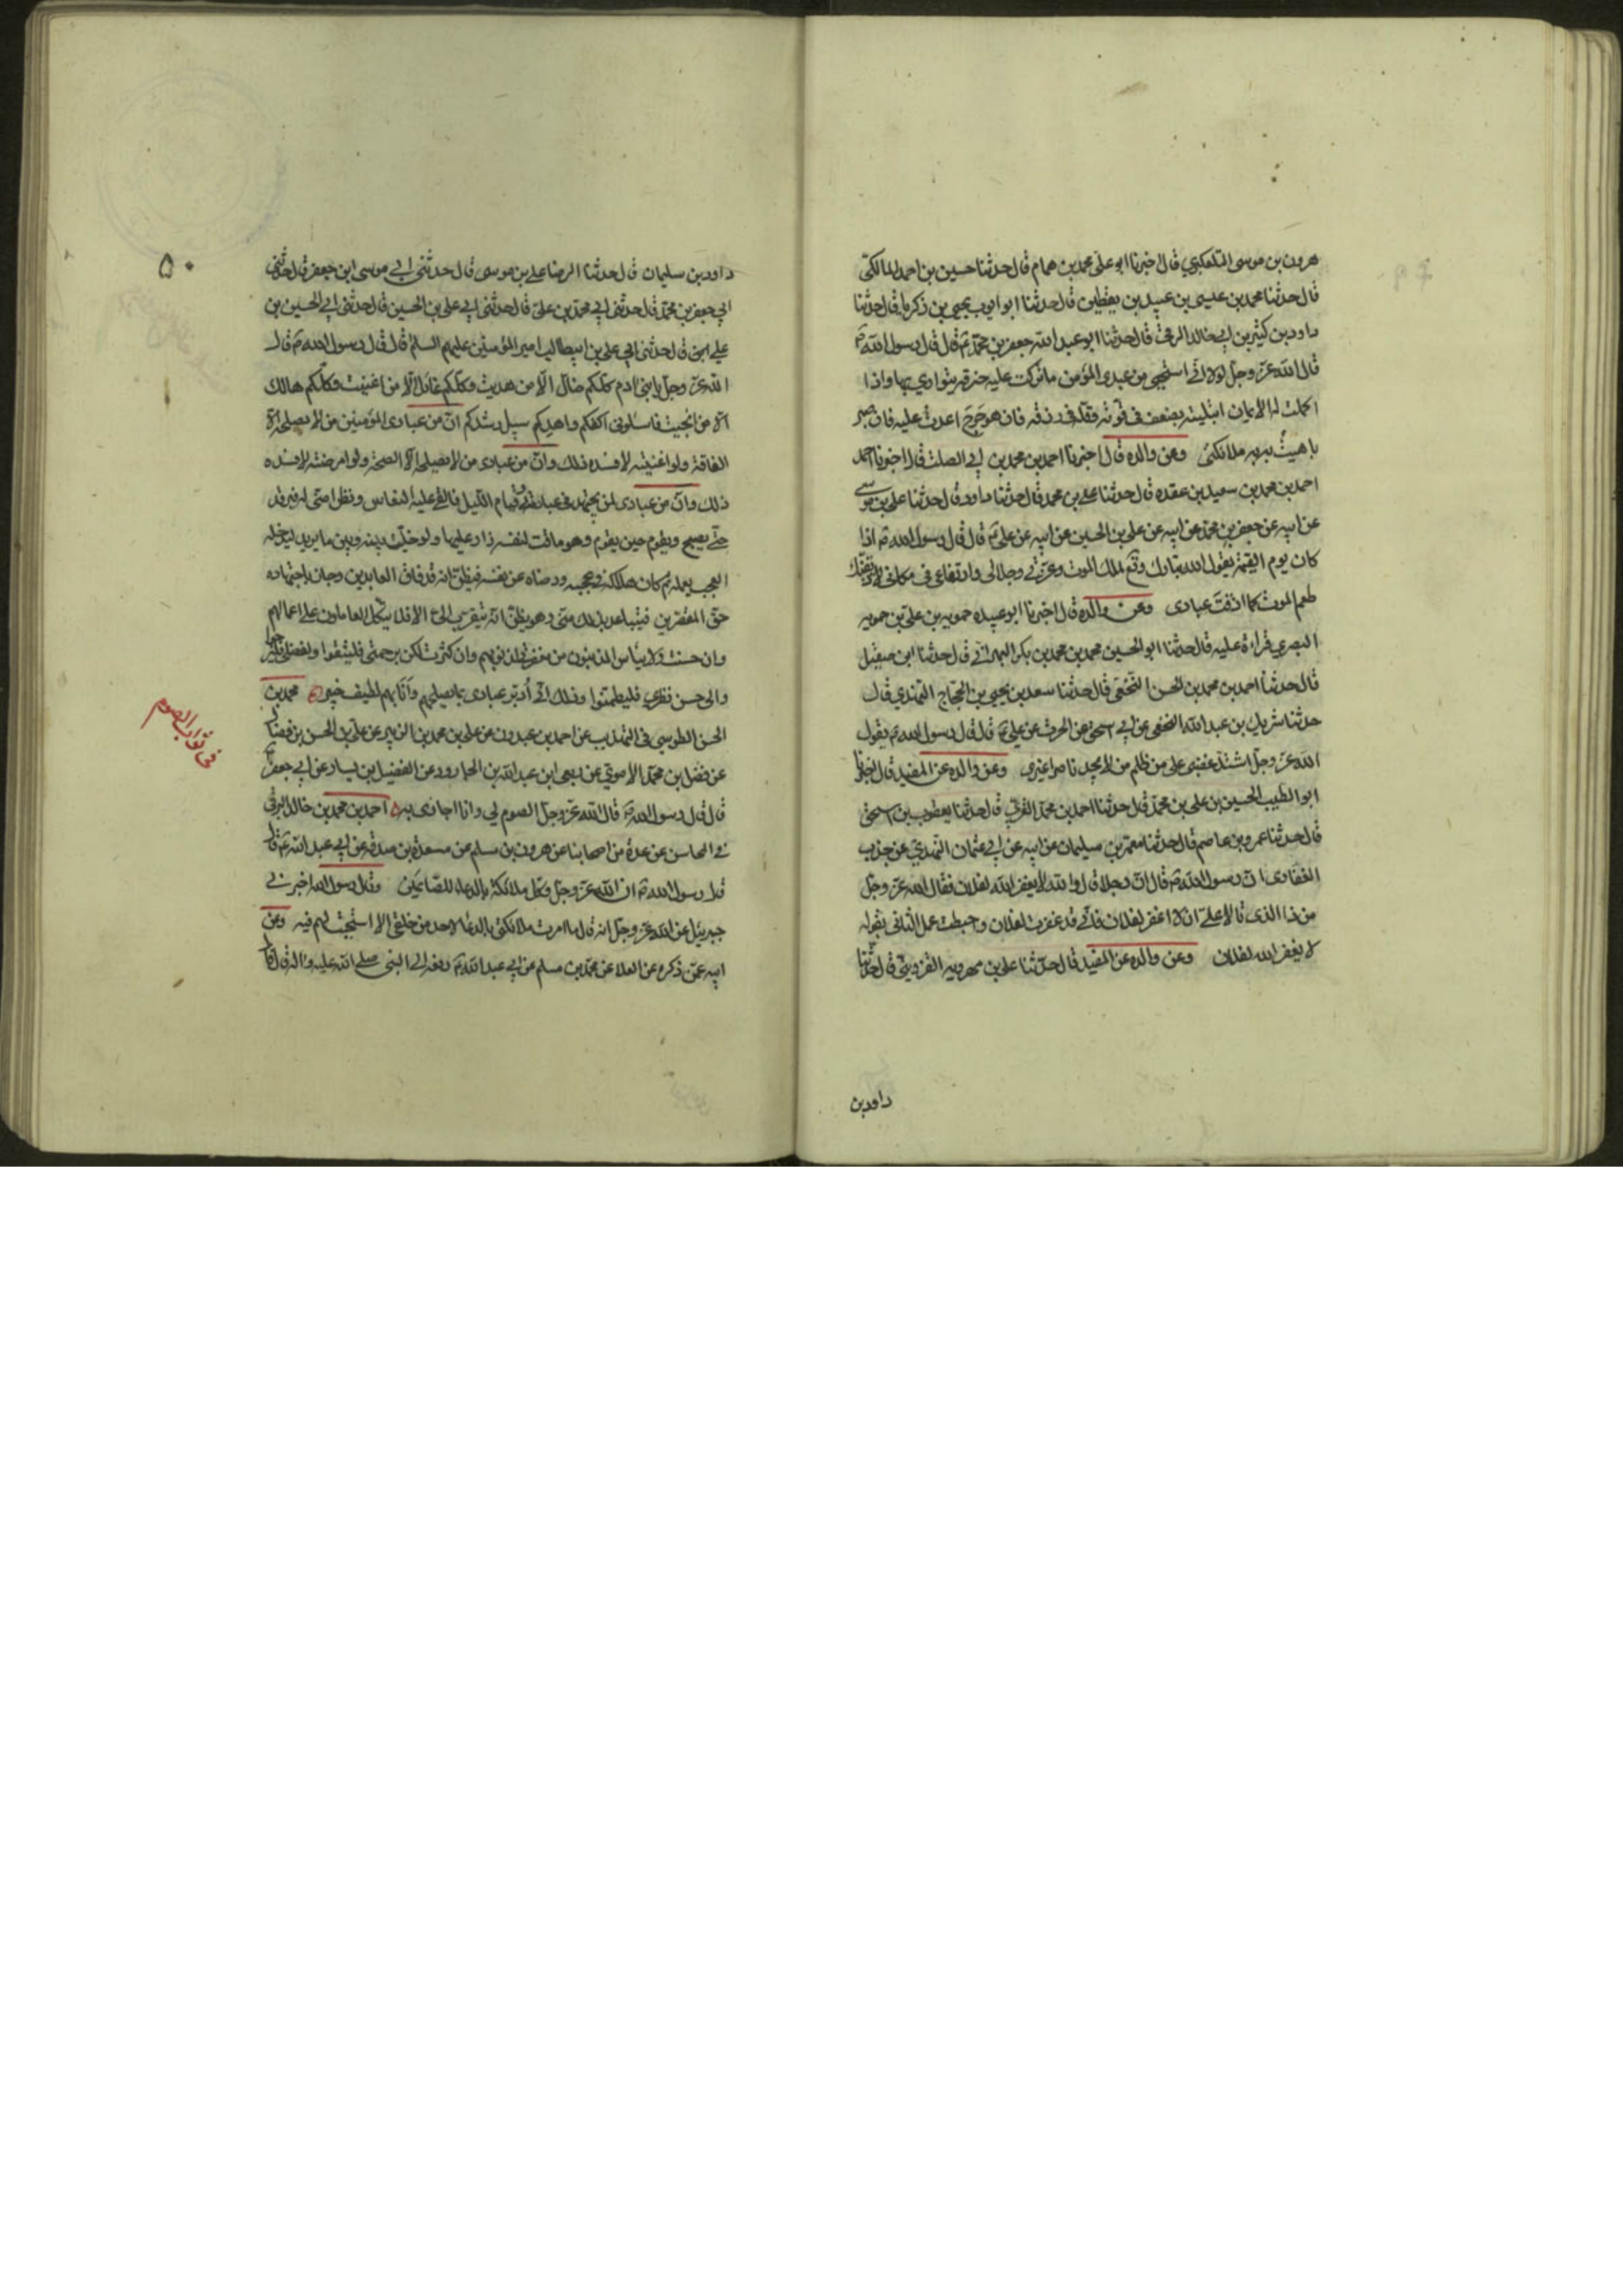 هرون بن موسى التلعكبري قال اخبرنا ابو على محمد بن همام قال حدثنا حسين بن احمد المالكى
قال حدثنا محمد بن عيسى بن عبيد بن يقطين قال حدثنا ابو ايوب يحيى بن زكريا قال حدثنا
داود بن كثير بن ابى خالد الرقى قال حدثنا ابو عبد الله جعفر بن محمد ع قال قال رسول الله ص
قال الله عز وجل لولا انى استحيى من عبدى المؤمن ما تركت عليه خرقة يتوارى بها واذا
اكملت له الايمان ابتليته بضعف فى قوته وقلة فى رزقه فان هو حرج اعدت عليه فان صبر
باهيت به ملائكتى وعن والده قال اخبرنا احمد بن محمد بن ابى الصلت قال اخبرنا احمد
احمد بن محمد بن سعيد بن عقده قال حدثنا على بن محمد قال حدثنا داود قال حدثنا على بن موسى
عن ابيه عن جعفر بن محمد عن ابيه عن على بن الحسين عن ابيه عن على ع قال قال رسول الله ص اذا
كان يوم القيمة يقول الله تبارك وتع لملك الموت وعزتى وجلالى وارتفاعى فى مكانى لاذيقنك
طعم الموت كما اذقت عبادى وعن والده قال اخبرنا ابو عبيده حمويه بن على بن حمويه
البصري قراءة عليه قال حدثنا ابو الحسين محمد بن محمد بن بكر الهزانى قال حدثنا ابن مقبل
قال حدثنا احمد بن محمد بن الحسن النخعى قال حدثنا سعد بن يحيى بن الحجاج النهدي قال
حدثنا شريك بن عبد الله النخعى عن ابى اسحق عن الحرث عن على ع قال قال رسول الله ص يقول
الله عز وجل اشتد غضبى على من ظلم من لا يجد ناصرا غيرى وعن والده عن المفيد قال اخبرنا
ابو الطيب الحسين بن على بن محمد قال حدثنا احمد بن محمد المقرى قال حدثنا يعقوب بن اسحق
قال حدثنا عمرو بن عاصم قال حدثنا معتمر بن سليمان عن ابيه عن ابى عثمان النهدى عن جندب
الغفارى ان رسول الله ص قال ان رجلا قال والله لا يغفر الله لفلان فقال الله عز وجل
من ذا الذى تالا على ان لا اغفر لفلان فانى قد غفرت لفلان وحبطت عمل الثانى بقوله
لا يغفر الله لفلان وعن والده عن المفيد قال حدثنا على بن مهرويه القزوينى قال حدثنا
داود بن
٥٠
داود بن سليمان قال حدثنا الرضا على بن موسى قال حدثنى ابى موسى ابن جعفر قال حدثنى
ابى جعفر بن محمد قال حدثنى ابى محمد بن على قال حدثنى ابى على بن الحسين قال حدثنى ابى الحسين بن
على ابن قال حدثنى ابى على بن ابيطالب امير المؤمنين عليهم السلم قال قال رسول الله ص قال
الله عز وجل يا بنى ادم كلكم ضال الا من هديت وكلكم عائل الا من اغنيت وكلكم هالك
الا من انجيت فاسئلونى اكفكم واهدكم سبيل رشدكم ان من عبادى المؤمنين من لا يصلحه الا
الفاقة ولو اغنيته لافسده ذلك وان من عبادى من لا يصلحه الا الصحة ولو امرضته لافسده
ذلك وان من عبادى لمن يجتهد فى عبادتى وقيام الليل فالقى عليه النعاس ونظرا منى له فيرقد
حتى يصبح ويقوم حين يقوم وهو ماقت لنفسه زار عليها ولو خليت بينه وبين ما يريد ليدخله
العجب بعمله ثم كان هلاكه فى عجبه ورضاه عن نفسه فيظن انه قد فاق العابدين وجاز باجتهاده
حق المقصرين فيتباعد بذلك منى وهو يظن انه يتقرب الى الا فلا يتكل العاملون على اعمالهم
وان حسنت ولا ييأس المذنبون من مغفرتى لذنوبهم وان كثرت لكن برحمتى فليثقوا ولفضلى فليرجوا
والى حسن نظري فليطمئنوا وذلك انى ادبر عبادى بما يصلحهم وانا بهم لطيف خبير محمد بن
الحسن الطوسى فى التهذيب عن احمد بن عبدون عن على بن محمد بن الزبير عن على بن الحسن بن فضال
عن فضل بن محمد الاموى عن ربعى ابن عبد الله بن الجارود عن الفضيل بن يسار عن ابى جعفر ع
قال قال رسول الله ص قال الله عز وجل الصوم لى وانا اجازى به احمد بن محمد بن خالد البرقى
فى المحاسن عن عدة من اصحابنا عن هرون بن مسلم عن مسعدة بن صدقة عن ابى عبد الله ع قال
قال رسول الله ص ان الله عز وجل وكل ملائكة بالدعاء للصائمين وقال رسول الله اخبرنى
جبرئيل عن الله عز وجل انه قال ما امرت ملائكتى بالدعاء لاحد من خلقى الا استجبت لهم فيه وعن
ابيه عمن ذكره عن العلا عن محمد بن مسلم عن ابى عبد الله ع رفعه الى النبى صلى الله عليه واله قال قال
فى ثواب الصوم